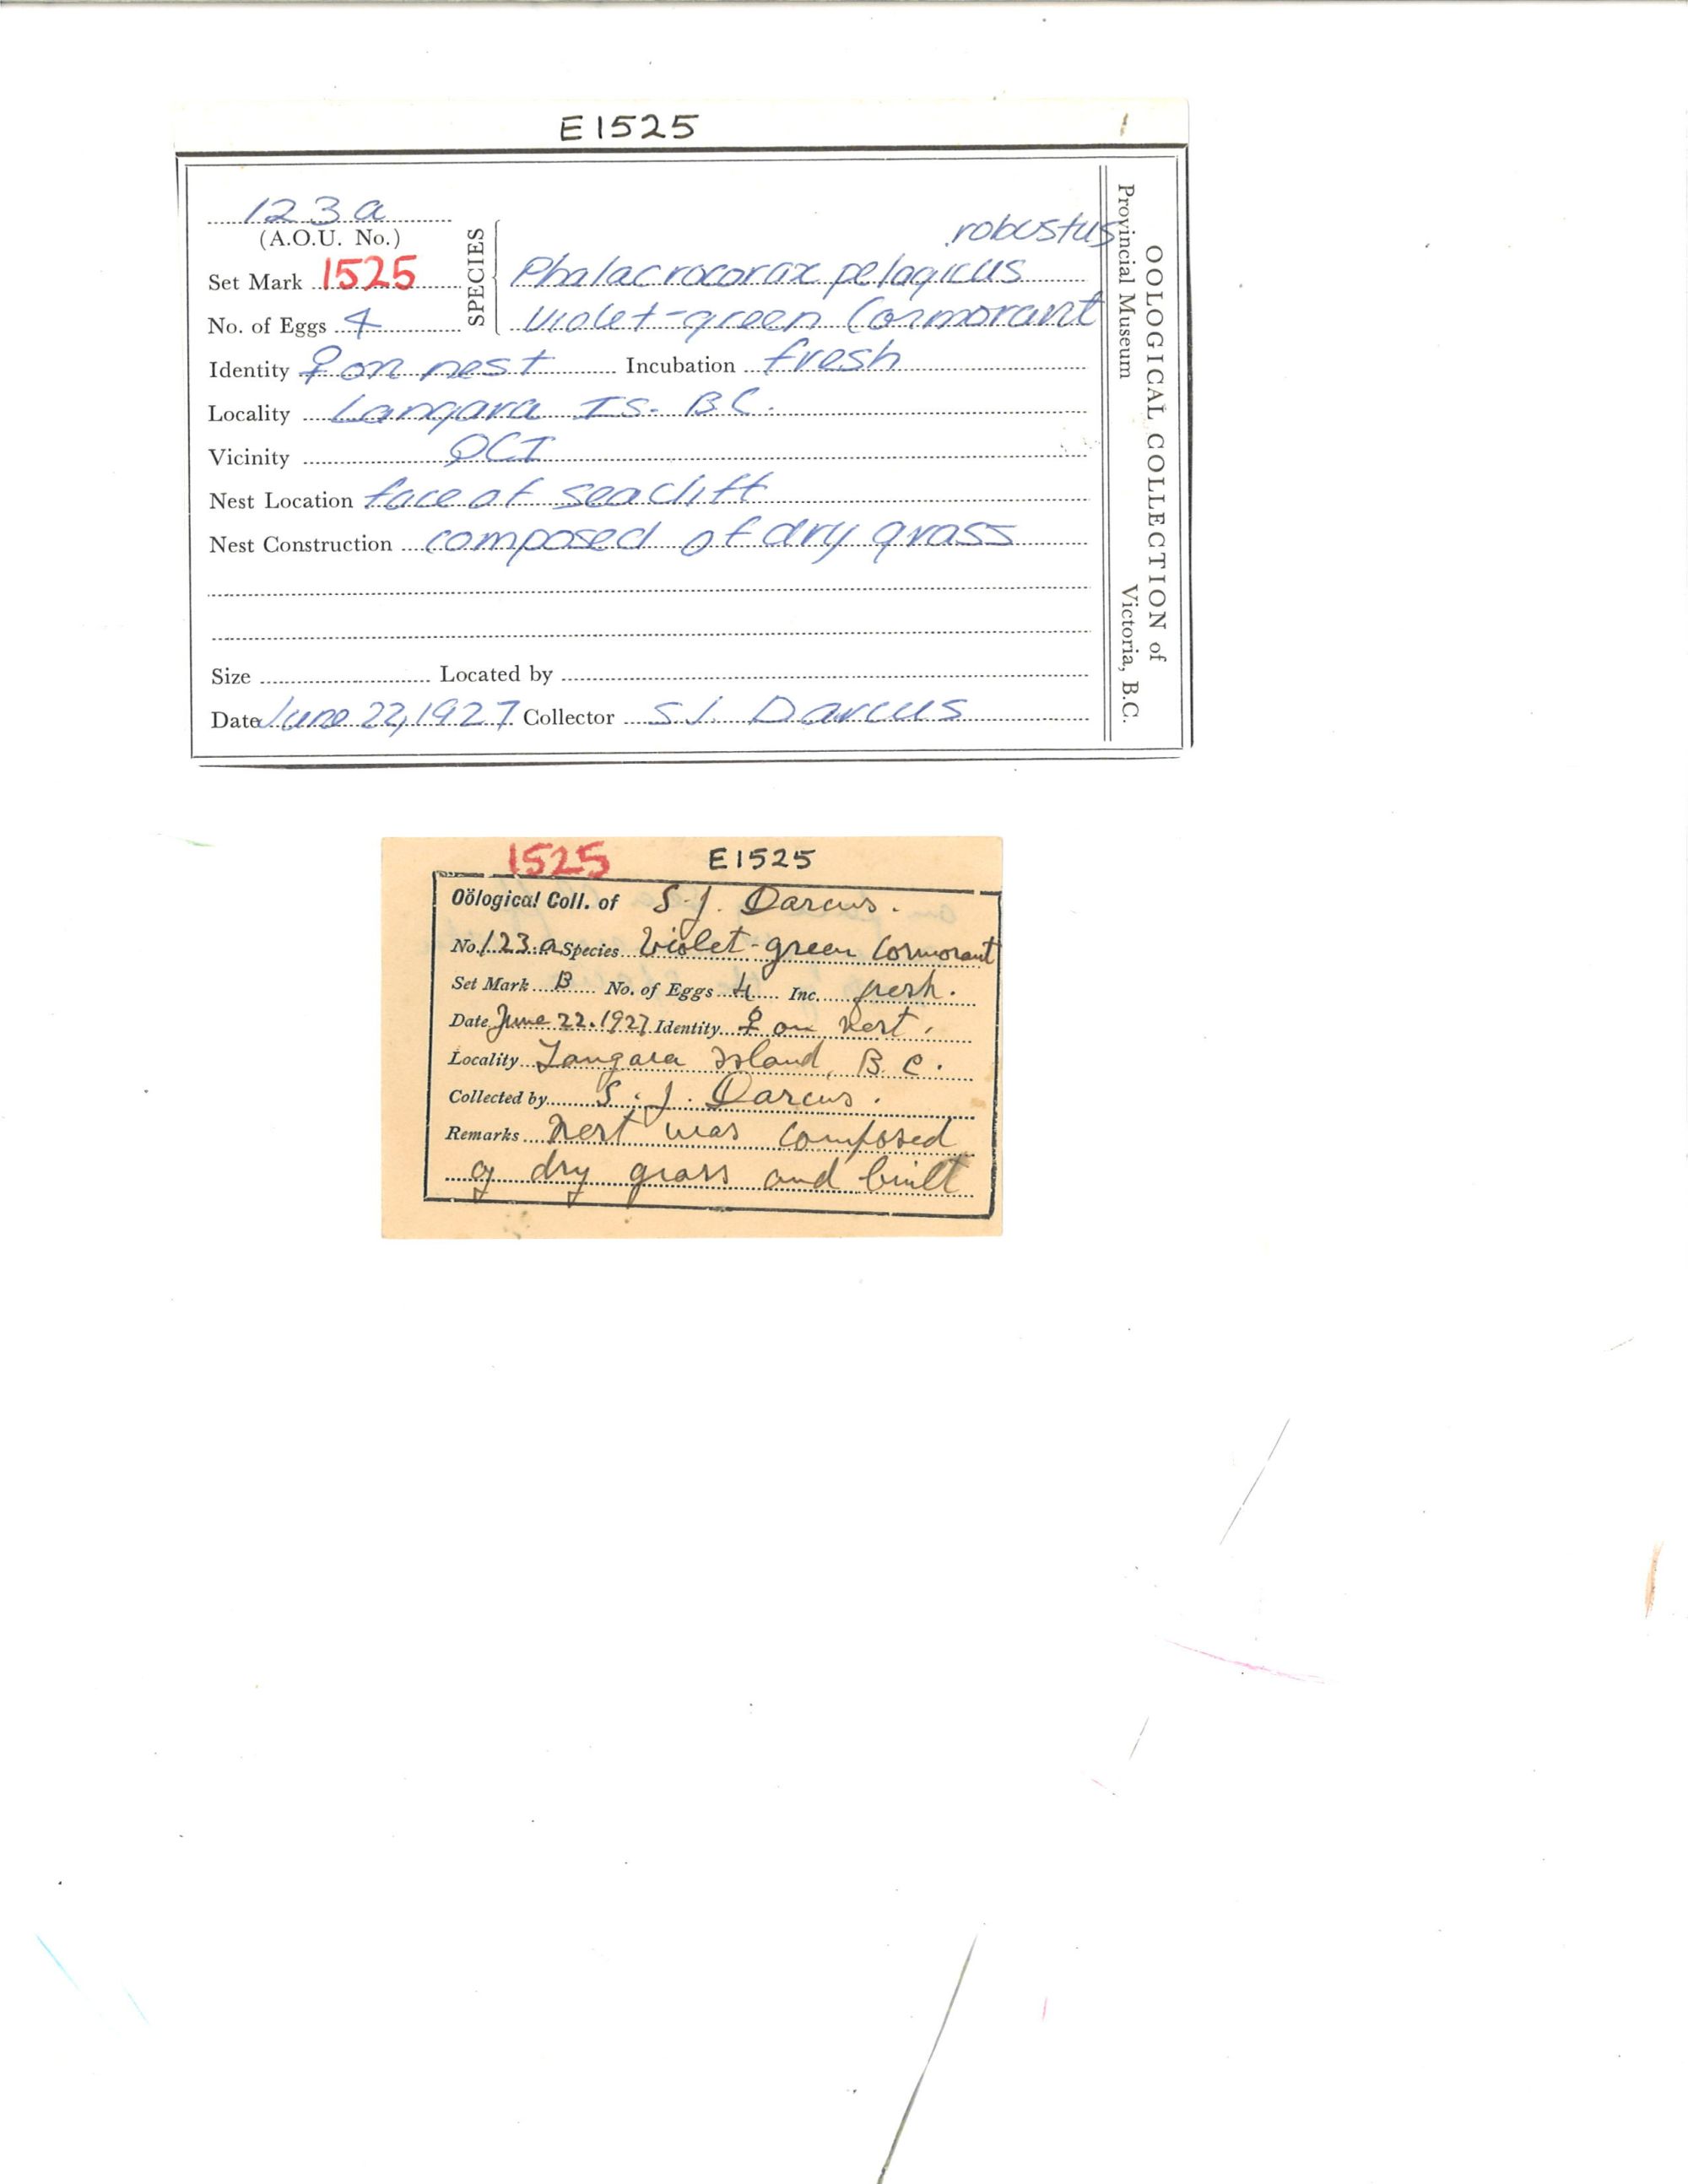 E1525
123a
(A.O.U. No.)
Set Mark 1525
No. of Eggs 4
SPECIES
robustus
Phalacrocorax pelagicus
Violet-green Cormorant
Identity ♀ on nest Incubation fresh
Locality Langara Is. B.C.
Vicinity QCI
Nest Location face of seacliff
Nest Construction composed of dry grass
Size Located by
Date June 22, 1927 Collector S.J. Darcus
OOLOGICAL COLLECTION of
Provincial Museum Victoria, B.C.
1525 E1525
Oölogical Coll. of S. J. Darcus.
No. 123.a Species Violet-green Cormorant
Set Mark B No. of Eggs 4 Inc. fresh.
Date June 22.1927 Identity ♀ on nest.
Locality Langara Island, B.C.
Collected by S. J. Darcus.
Remarks Nest was composed
of dry grass and built